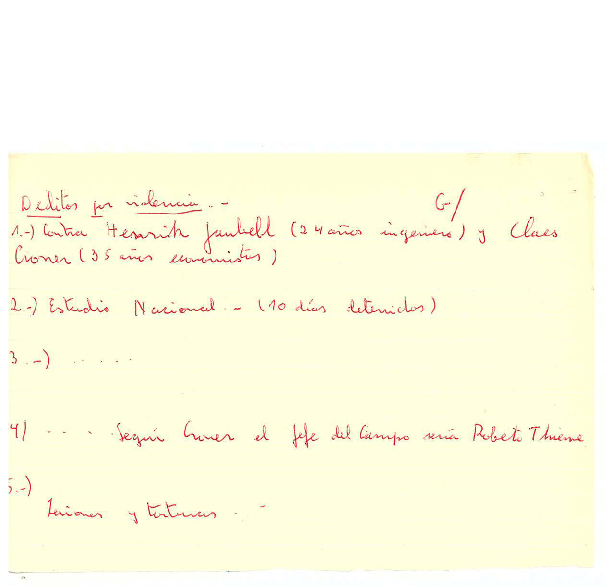 Delitos por violencia.-
G-/
1.-) Contra Heinrich Jaubell (24 años ingeniero) y Claes
Croner (35 años economistas)
2.-) Estadio Nacional.- (10 días detenidos)
3.-) .....
4) .... Según Croner el jefe del Campo sería Roberto Thieme
5.-)
Lesiones y torturas..-